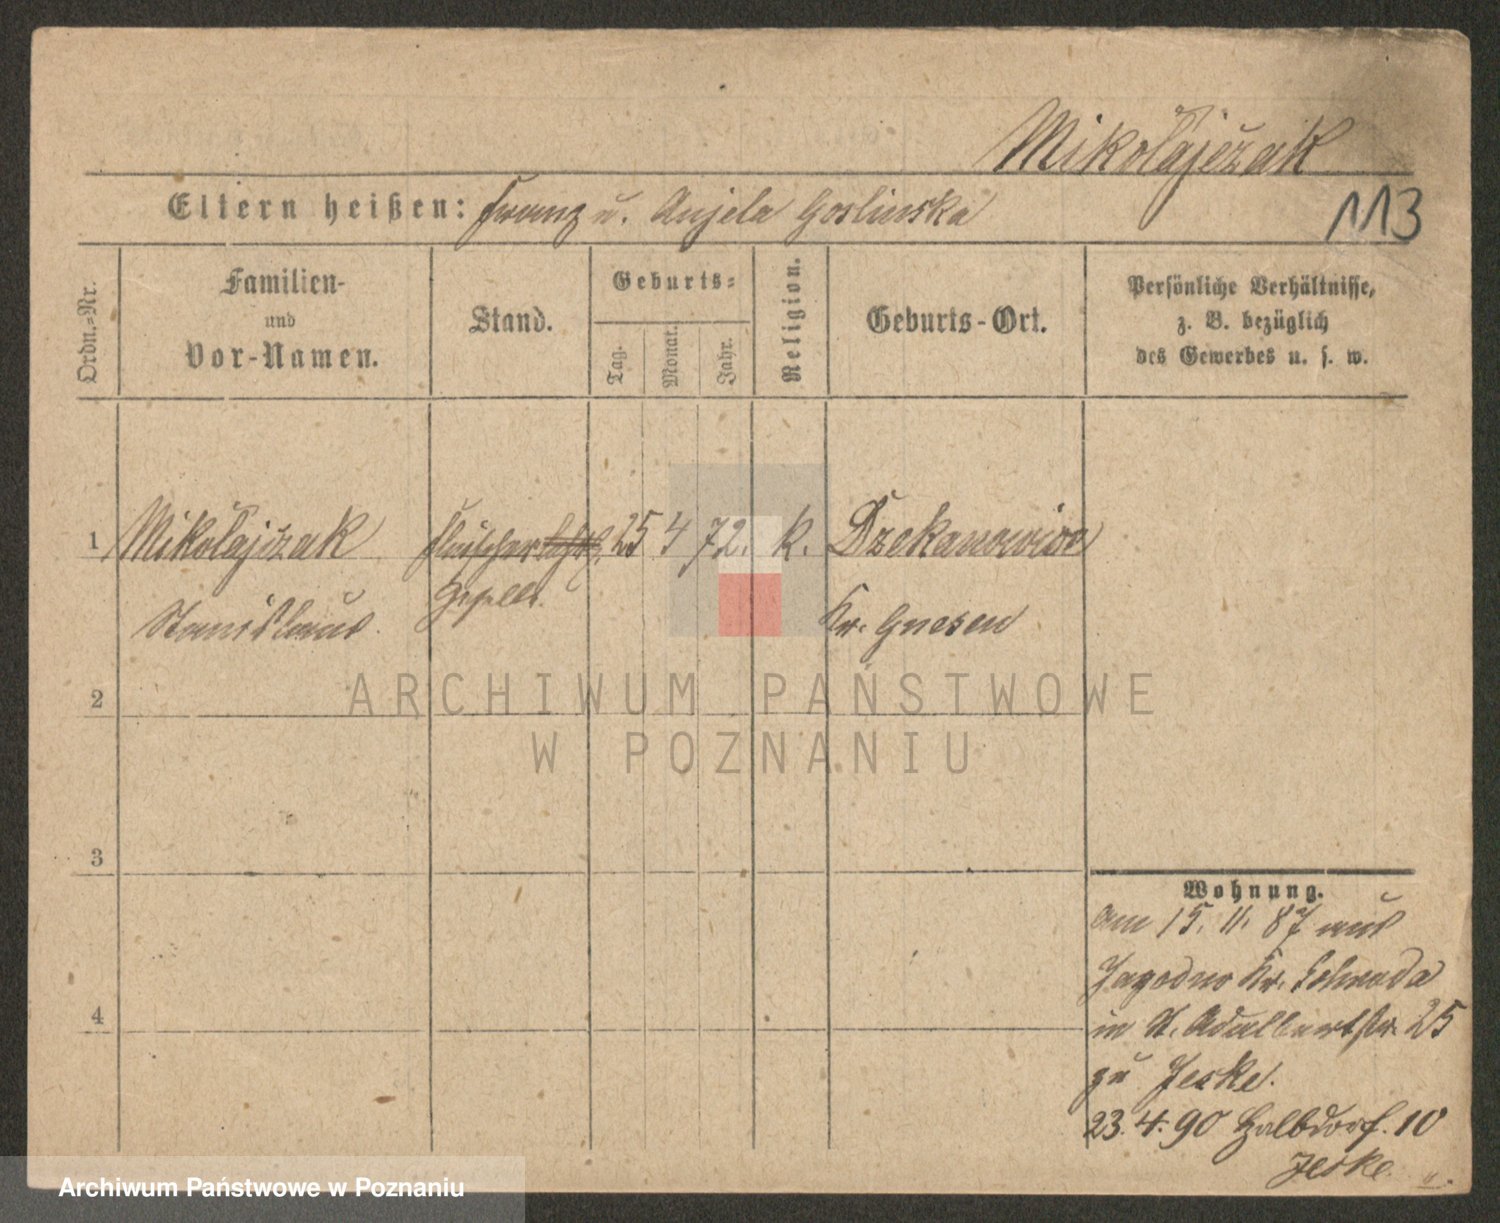 Mikołajczak
Eltern heißen: Franz u. Anjela Goslinska
113
Ordn.-Nr.
Familien-
und
Vor-Namen.
Stand.
Geburts-
Tag.
Monat.
Jahr.
Religion.
Geburts-Ort.
Persönliche Verhältnisse,
z. B. bezüglich
des Gewerbes u. s. w.
1 Mikołajczak Fleischer 25 4 72. k. Dzekanowice
Stanislaus Geselle. Kr. Gnesen
2
3
4
Wohnung.
am 15. 11. 87 aus
Jagodno Kr. Schroda
in St. Adalbertstr. 25
zu Jeske.
23. 4. 90 Halbdorf. 10
Jeske.
ARCHIWUM PAŃSTWOWE
W POZNANIU
Archiwum Państwowe w Poznaniu